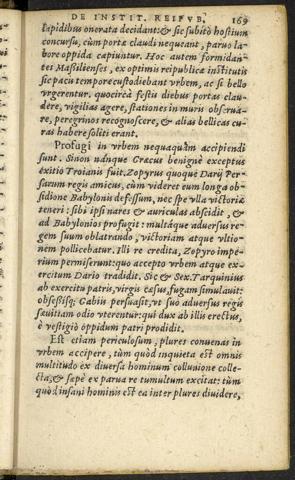 DE INSTIT. REIPVB. 169
lapidibus onerata decidant: & sic subitò hostium
concursu, cùm portæ claudi nequeant, paruo la-
bore oppida capiuntur. Hoc autem formidan-
tes Massilienses, ex optimis reipublicæ institutis
sic pacis tempore custodiebant vrbem, ac si bello
vrgerentur. quocircà festis diebus portas clau-
dere, vigilias agere, stationes in muris obserua-
re, peregrinos recognoscere, & alias bellicas cu-
ras habere soliti erant.
Profugi in vrbem nequaquàm accipiendi
sunt. Sinon nánque Græcus benignè exceptus
exitio Troianis fuit. Zopyrus quoque Darij Per-
sarum regis amicus, cùm videret eum longa ob-
sidione Babylonis defessum, nec spe vlla victoriæ
teneri: sibi ipsi nares & auriculas abscidit, &
ad Babylonios profugit: multáque aduersus re-
gem suum oblatrando, victoriam atque vltio-
nem pollicebatur. Illi re credita, Zopyro impe-
rium permiserunt: quo accepto vrbem atque ex-
ercitum Dario tradidit. Sic & Sex. Tarquinius
ab exercitu patris, virgis cæsus, fugam simulauit:
obsessísq; Gabiis persuasit, vt suo aduersus regis
sæuitiam odio vterentur: qui dux ab illis erectus,
è vestigiò oppidum patri prodidit.
Est etiam periculosum, plures conuenas in
vrbem accipere, tùm quòd inquieta est omnis
multitudo ex diuersa hominum colluuione colle-
cta, & sæpè ex parua re tumultum excitat: tùm
quòd insani hominis est ea inter plures diuidere,